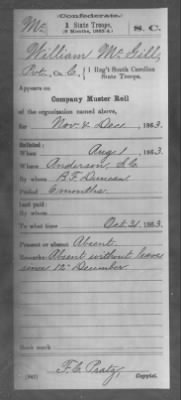 Confederate.
Mc
3 State Troops,
(6 Months, 1863-4.)
S. C.
William McGill
Pvt., Co. C, 1 Reg't South Carolina
State Troops.
Appears on
Company Muster Roll
of the organization named above,
for Nov & Dec, 1863.
Enlisted:
When Aug 1, 1863.
Where Anderson, S.C.
By whom B. F. Duncan
Period 6 months
Last paid:
By whom
To what time Oct 31, 1863.
Present or absent Absent
Remarks: Absent without leave
since 12 December
Book mark:
(642)
Copyist.